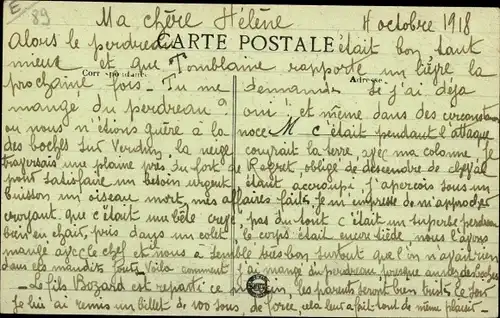 E
89
Ma chère Hélène 4 octobre 1918
CARTE POSTALE
Correspondance Adresse
Alors le perdreau était bon tant
mieux et que Tomblaine rapporte un lièvre la
prochaine fois. Tu me demandes si j'ai déjà
mangé du perdreau? oui! et même dans des circonstances
ou nous n'étions guère à la noce. C'était pendant l'attaque
des boches sur Verdun, la neige couvrait la terre, avec ma colonne, je
traversais une plaine près du fort de Regret, obligé de descendre de cheval
pour satisfaire un besoin urgent étant accroupi j'aperçois sous un
buisson un oiseau mort, mes affaires faites je m'empresse de m'approcher
croyant que c'était une bête crevée pas du tout c'était un superbe perdreau
bien en chair, pris dans un colet, le corps était encore tiède, nous l'avons
mangé avec le chef et nous a semblé très bon surtout que l'on n'avait rien
dans ces maudits forts. Voilà comment j'ai mangé du perdreau presque au nez des boches
- Le fils Bozard est reparti ce matin, les parents seront bien tristes ce soir
je lui ai remis un billet de 100 sous, de force, cela leur a fait tout de même plaisir -